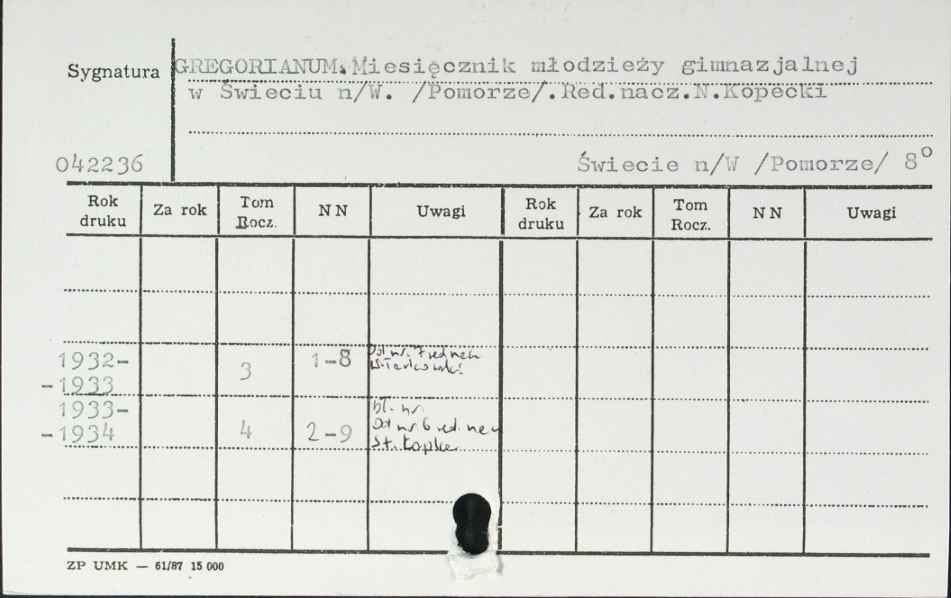 Sygnatura GREGORIANUM. Miesięcznik młodzieży gimnazjalnej
w Świeciu n/W. /Pomorze/. Red.nacz.N.Kopecki
042236 Świecie n/W /Pomorze/ 8°
Rok druku Za rok Tom Rocz. NN Uwagi Rok druku Za rok Tom Rocz. NN Uwagi
1932- 3 1-8 Od nr. 7 red. nacz.
-1933
1933- bł. nr.
-1934 4 2-9 Od nr 6 red. nacz
St. Kopka
ZP UMK — 61/87 15 000